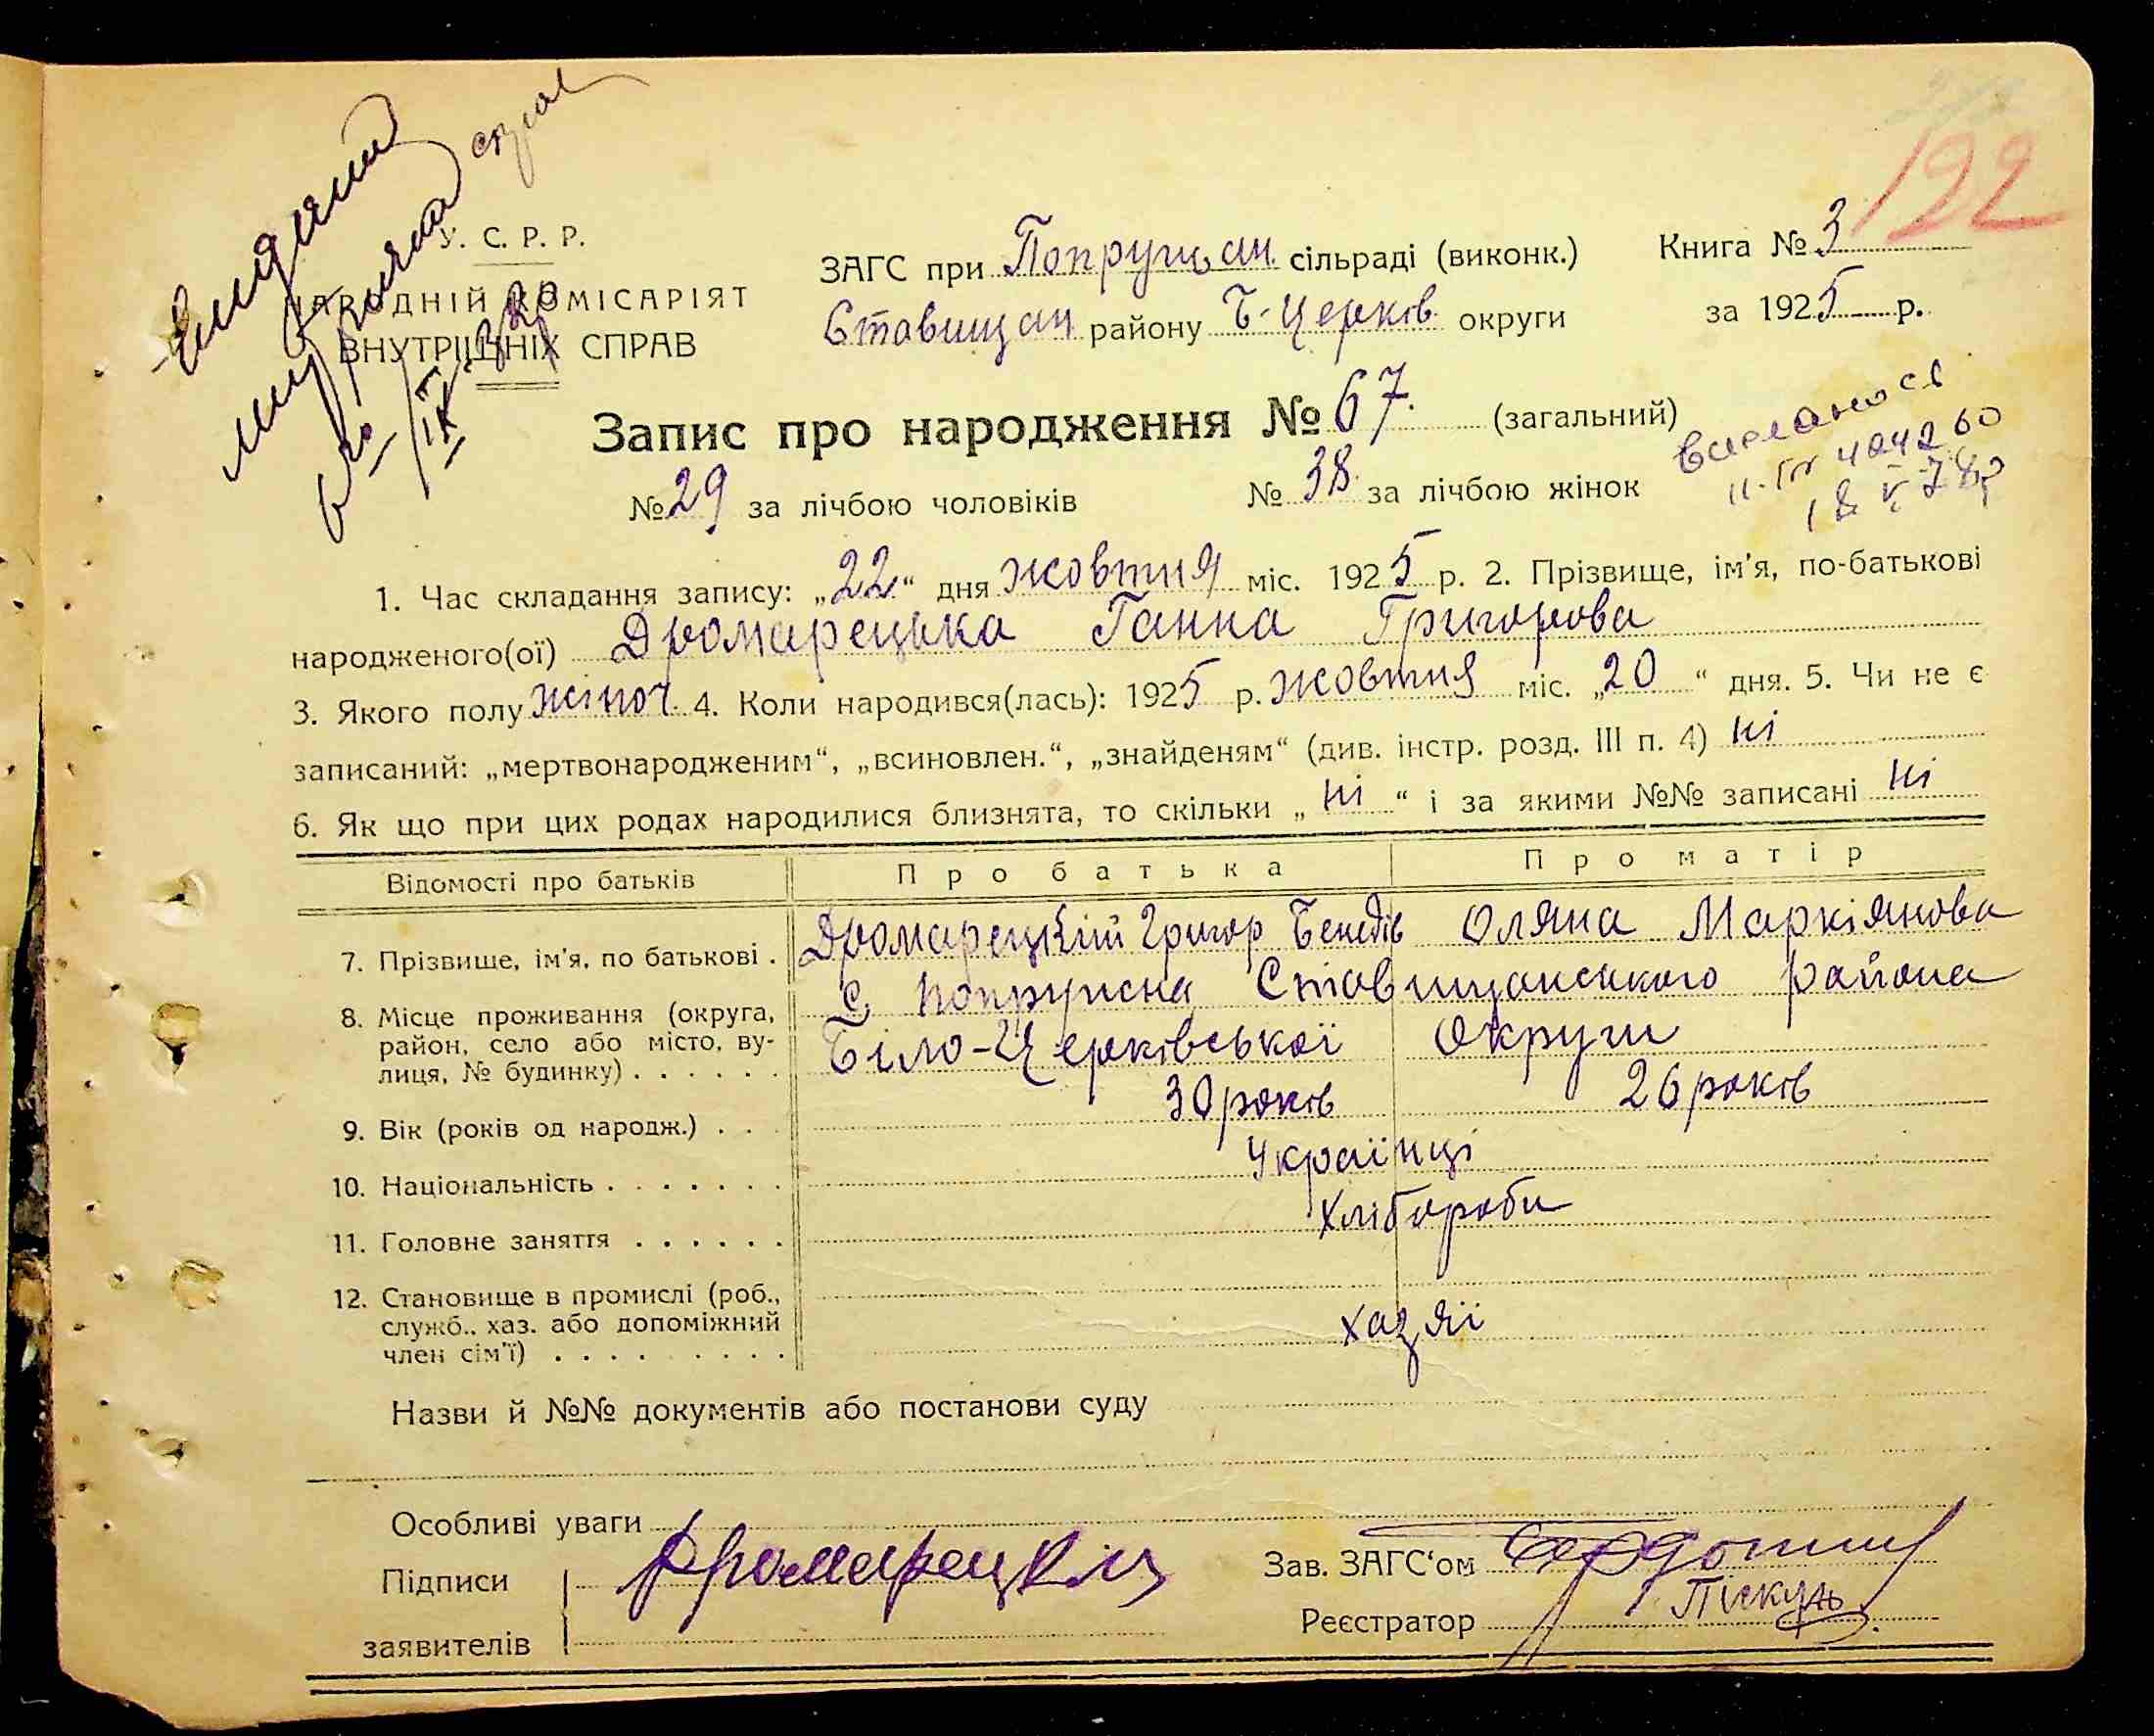 122
У. С. Р. Р.
НАРОДНІЙ КОМІСАРІЯТ
ВНУТРІШНІХ СПРАВ
ЗАГС при Попружан. сільраді (виконк.) Книга № 3
Ставищан району Б-Церків. округи за 1925 р.
Запис про народження № 67. (загальний)
№ 29 за лічбою чоловіків № 38. за лічбою жінок
1. Час складання запису: „22“ дня жовтня міс. 1925 р. 2. Прізвище, ім'я, по-батькові
народженого(ої) Дромарецька Ганна Григорова
3. Якого полу жіноч. 4. Коли народився(лась): 1925 р. жовтня міс. „20“ дня. 5. Чи не є
записаний: „мертвонародженим“, „всиновлен.“, „знайденям“ (див. інстр. розд. III п. 4) ні
6. Як що при цих родах народилися близнята, то скільки „ні“ і за якими №№ записані ні
Відомості про батьків Про батька Про матір
7. Прізвище, ім'я, по батькові . Дромарецкій Григор Бенедів Оляна Маркіянова
8. Місце проживання (округа, с. Попружна Ставищанського района
район, село або місто, ву-
лиця, № будинку) . . . . . . Біло-Церківської Округи
9. Вік (років од народж.) . . . 30 років 26 років
10. Національність . . . . . . . Українці
11. Головне заняття . . . . . . Хлібороби
12. Становище в промислі (роб.,
служб., хаз. або допоміжний
член сім'ї) . . . . . . . . . хазяї
Назви й №№ документів або постанови суду
Особливі уваги
Підписи Дромарецкій Зав. ЗАГС'ом
заявителів Реєстратор Піскунь